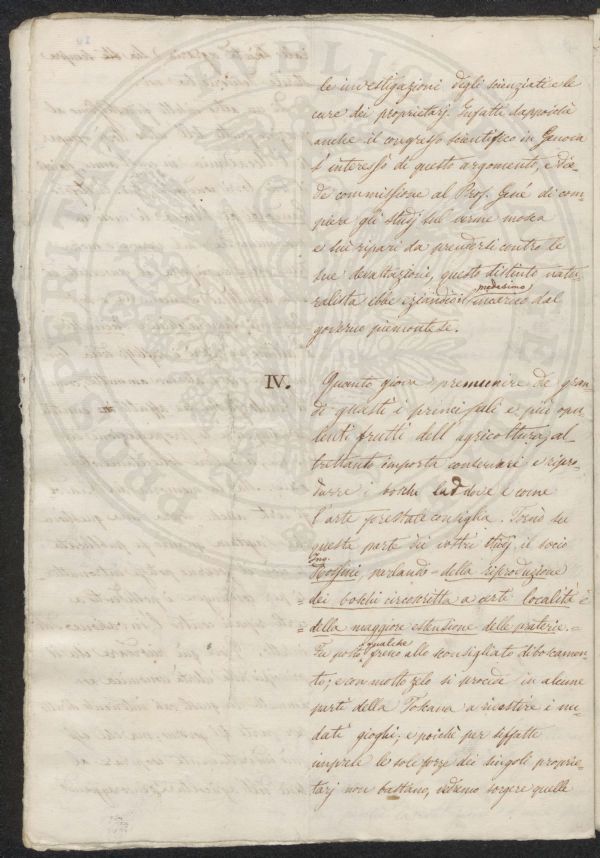 le investigazioni degli scienziati e le
cure dei proprietarj. Infatti dappoichè
anche il congresso scientifico in Genova
s'interessò di questo argomento, e die-
de commissione al Prof. Gené di com-
piere gli studj sul verme mosca
e sui ripari da prendersi contro le
sue devastazioni, questo distinto natu-
ralista ebbe eziandio medesimo incarico dal
governo piemontese.
IV. Quanto giova premunire de' gran-
di guasti i principali e più opu-
lenti frutti dell'agricoltura, al-
trettanto importa conservare e ripro-
durre i boschi laddove e come
l'arte forestale consiglia. Tornò su
questa parte dei vostri studj, il socio
Ing.
parlando = della riproduzione
= dei boschi circoscritta a certe località e
= della maggiore estensione delle praterie. =
Fu posto qualche freno allo sconsigliato diboscamen-
to; e con molto zelo si procede in alcune
parti della Toscana a rivestire i nu-
dati gioghi; e poichè per siffatte
imprese le sole forze dei singoli proprie-
tarj non bastano, vedremo sorgere quelle
PROSPERITATI PUBLICAE